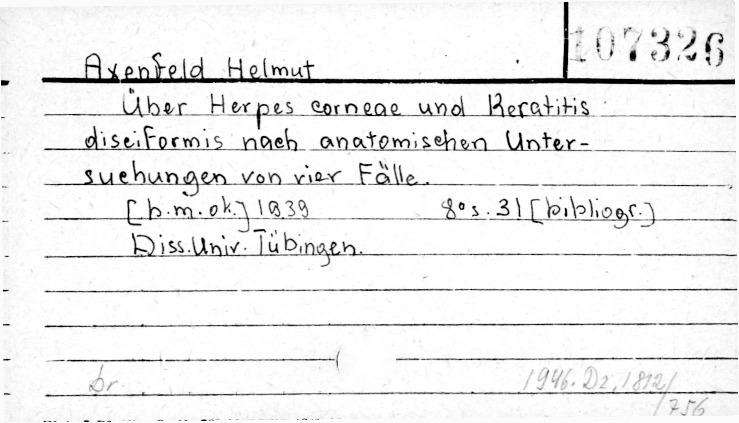 107326
Axenfeld Helmut
Über Herpes corneae und Keratitis
disciformis nach anatomischen Unter-
suchungen von vier Fälle.
[b.m.ok.] 1939 8° s. 31 [bibliogr.]
Diss. Univ. Tübingen.
br.
1946. Dz, 1812/
/756